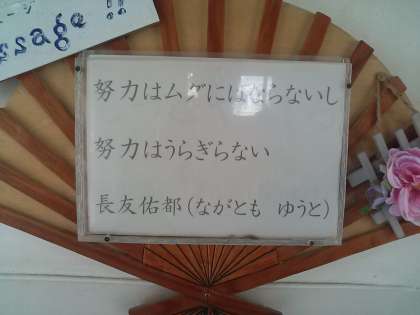 ssage !!
努力はムダにはならないし
努力はうらぎらない
長友佑都(ながとも ゆうと)